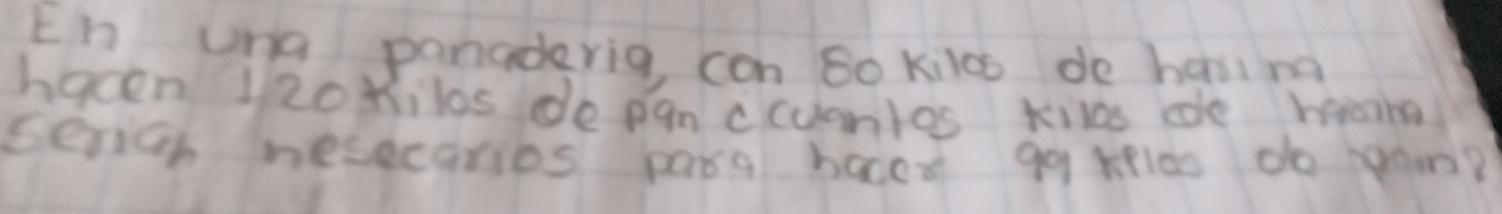 En una panaderia, con 80 kilos de harina
hacen 120 kilos de pan ¿cuantos kilos de harina
serian nesecarios para hacer 99 kilos de pan?